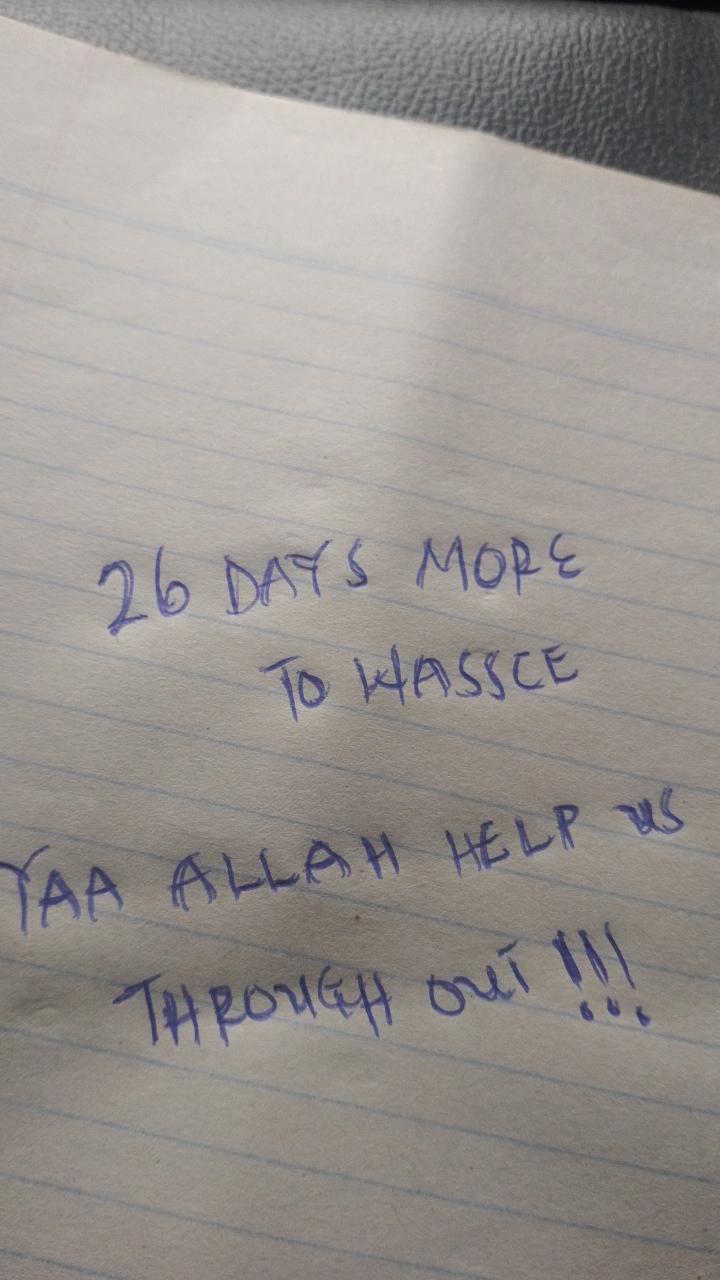 26 DAYS MORE
TO WASSCE
YAA ALLAH HELP us
THROUGH OUT !!!